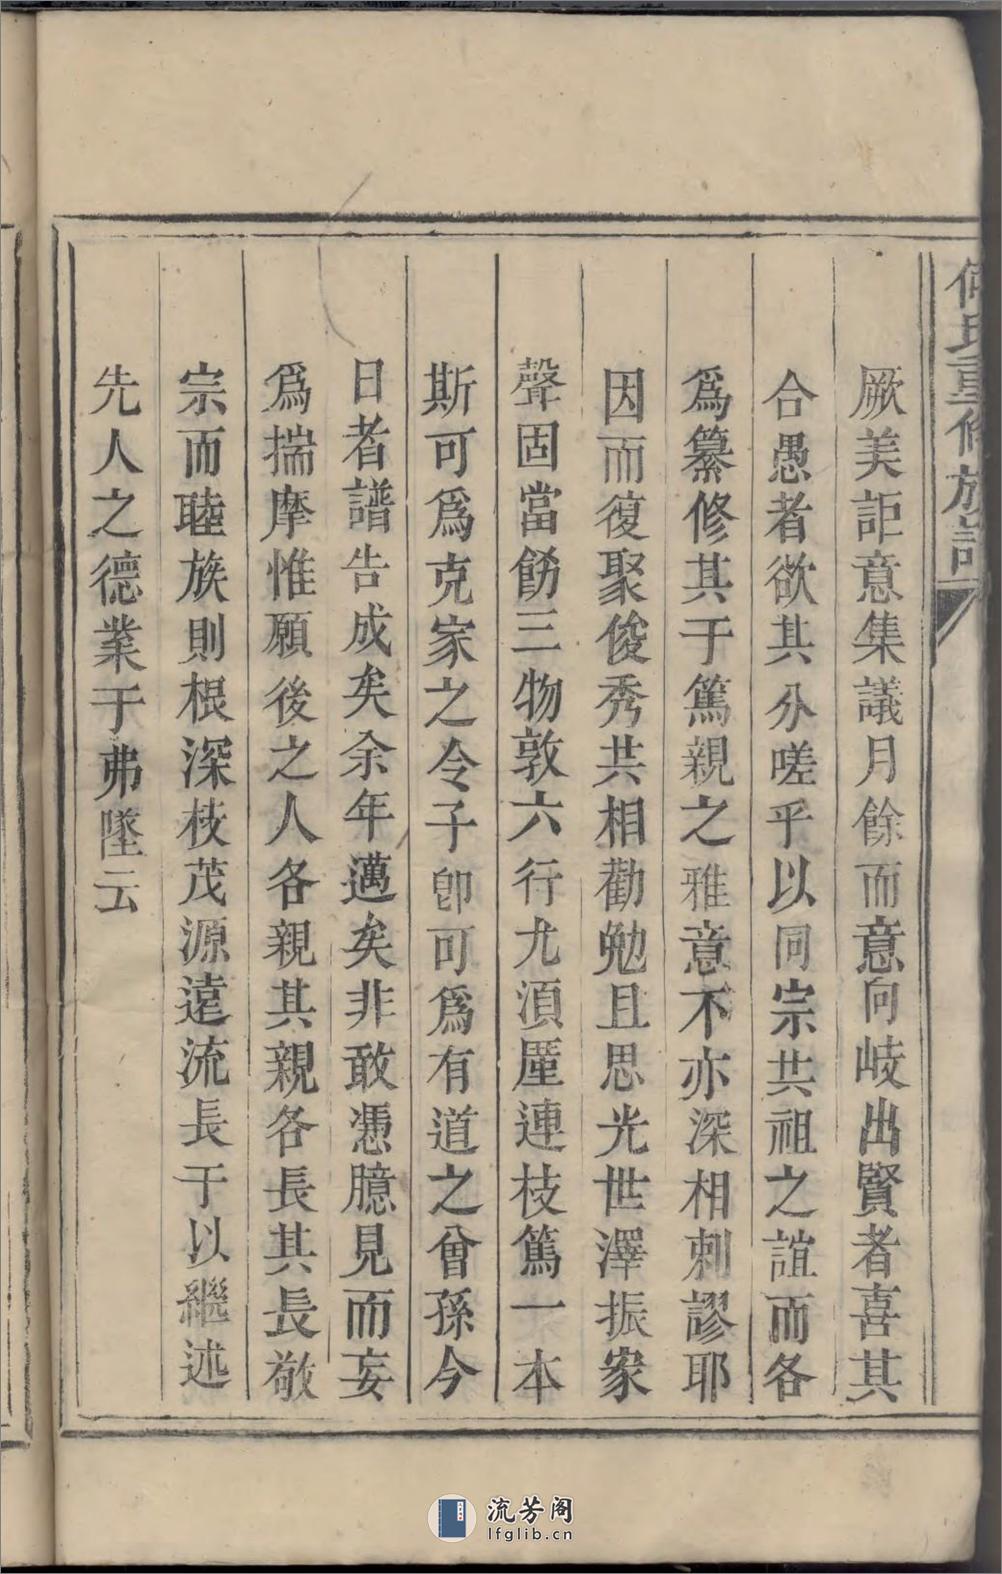 何氏重修族譜
厥美詎意集議月餘而意向岐出賢者喜其
合愚者欲其分嗟乎以同宗共祖之誼而各
爲纂修其于篤親之雅意不亦深相剌謬耶
因而復聚俊秀共相勸勉且思光世澤振家
聲固當飭三物敦六行尤湏厪連枝篤一本
斯可爲克家之令子卽可爲有道之曾孫今
日者譜告成矣余年邁矣非敢慿臆見而妄
爲揣摩惟願後之人各親其親各長其長敬
宗而睦族則根深枝茂源遠流長于以繼述
先人之德業于弗墜云
流芳阁
lfglib.cn